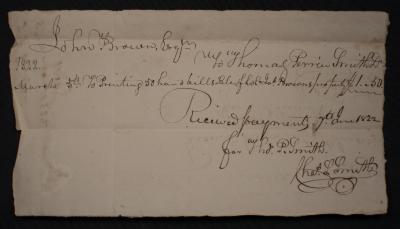 John Brown, Esqr
To Thomas Perrin Smith Dr
1822.
March 5th To Printing 50 hand bills Sale of Property $1.50
Received payment 7th June 1822
for Thos. P. Smith.
Chas. Smith